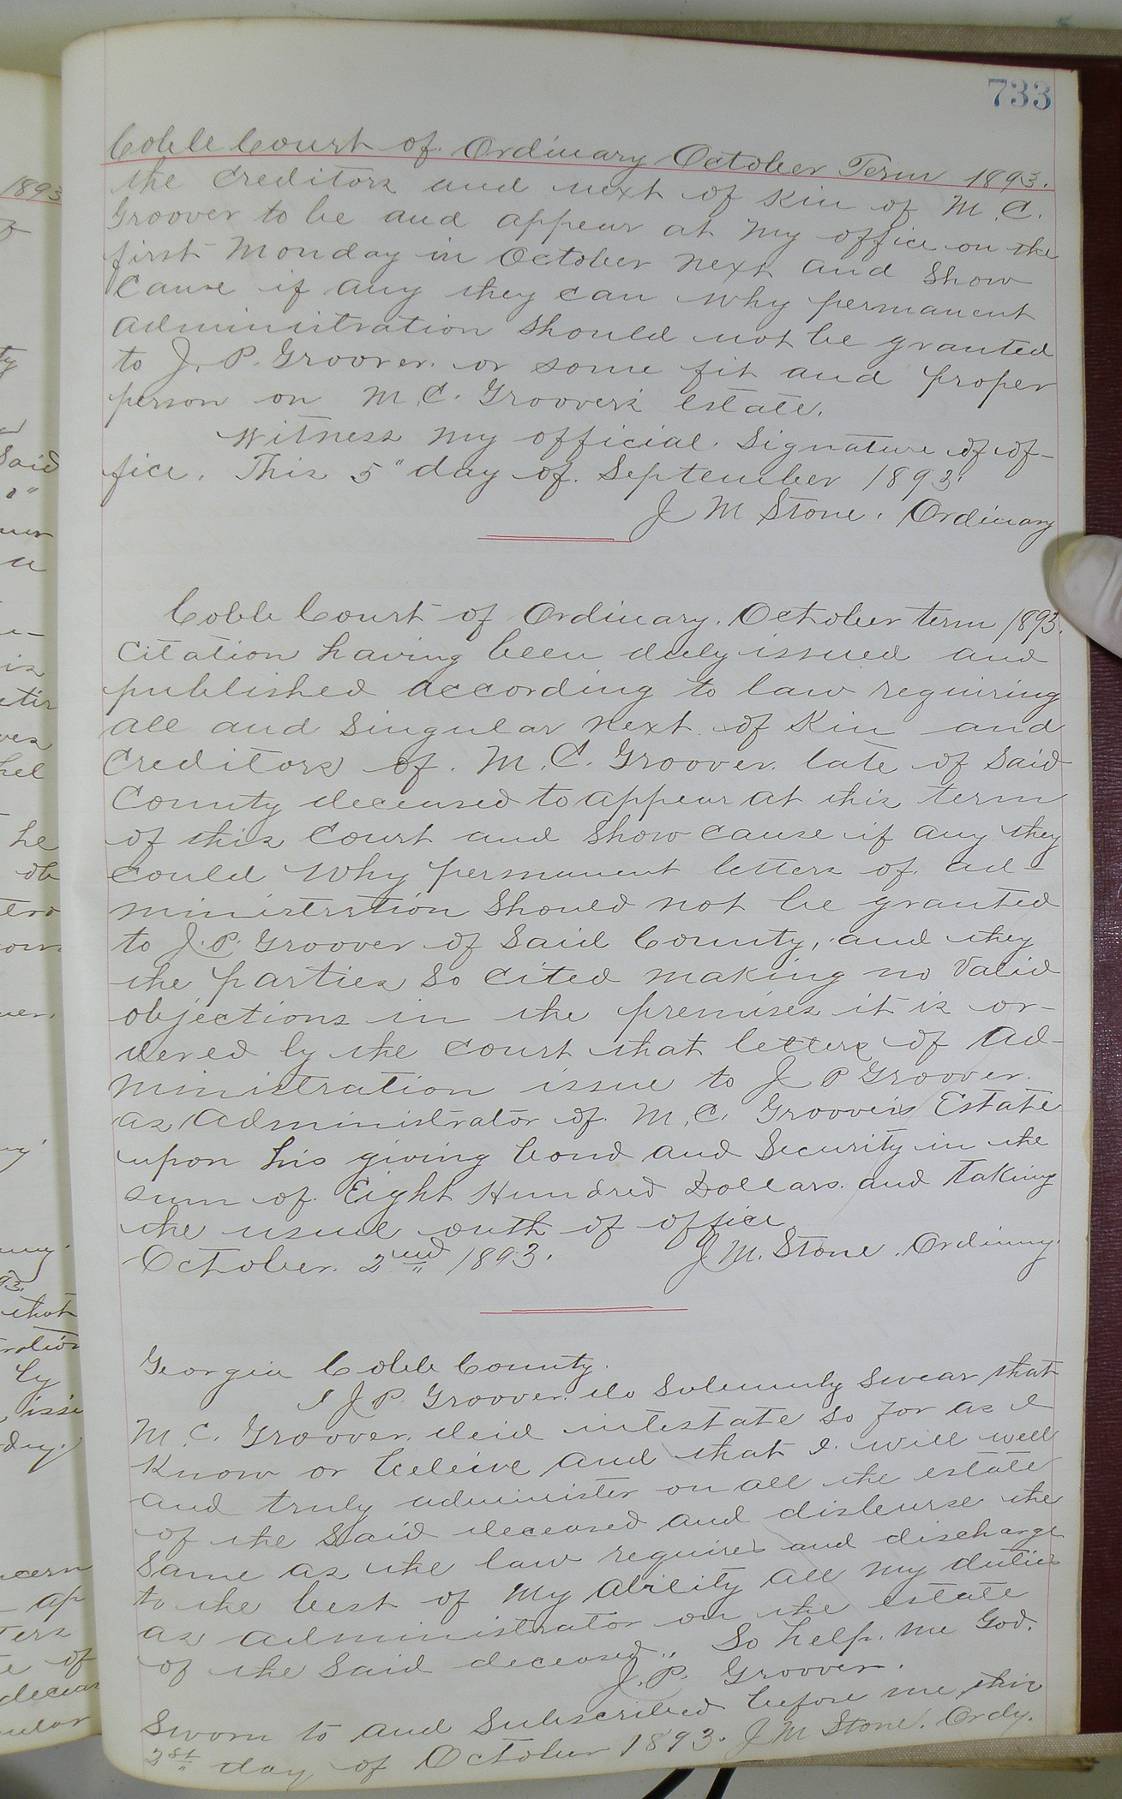 733
Cobb Court of Ordinary October Term 1893.
the Creditors and next of Kin of M. C.
Groover to be and appear at my office on the
first Monday in October next and show
Cause if any they can why permanent
administration should not be granted
to J. P. Groover. or some fit and proper
person on M. C. Groover's Estate.
Witness my official Signature of of-
fice. This 5" day of September 1893.
J M Stone. Ordinary
Cobb Court of Ordinary. October term 1893.
Citation having been duly issued and
published according to law requiring
all and Singular next of Kin and
Creditors of M. C. Groover late of Said
County deceased to appear at this term
of this Court and show cause if any they
could why permanent letters of ad-
ministration should not be granted
to J. P. Groover of Said County, and they
the parties so cited making no valid
objections in the premises it is or-
dered by the court that letters of Ad-
ministration issue to J P Groover.
as Administrator of M. C. Groover's Estate
upon his giving bond and Security in the
sum of Eight Hundred Dollars and taking
the usual outh of office.
October 2nd 1893. J M. Stone. Ordinary.
Georgia Cobb County.
I J P. Groover. do Solemnly Swear that
M. C. Groover. deid intestate so far as I
Know or beleive and that I will well
and truly administer on all the estate
of the Said deceased and disburse the
Same as the law requires and discharge
to the best of my ability all my duties
as administrator on the estate
of the Said deceased. So help me God.
J. P. Groover.
Sworn to and Subscribed before me this
2st day of October 1893. J M Stone. Ordy.